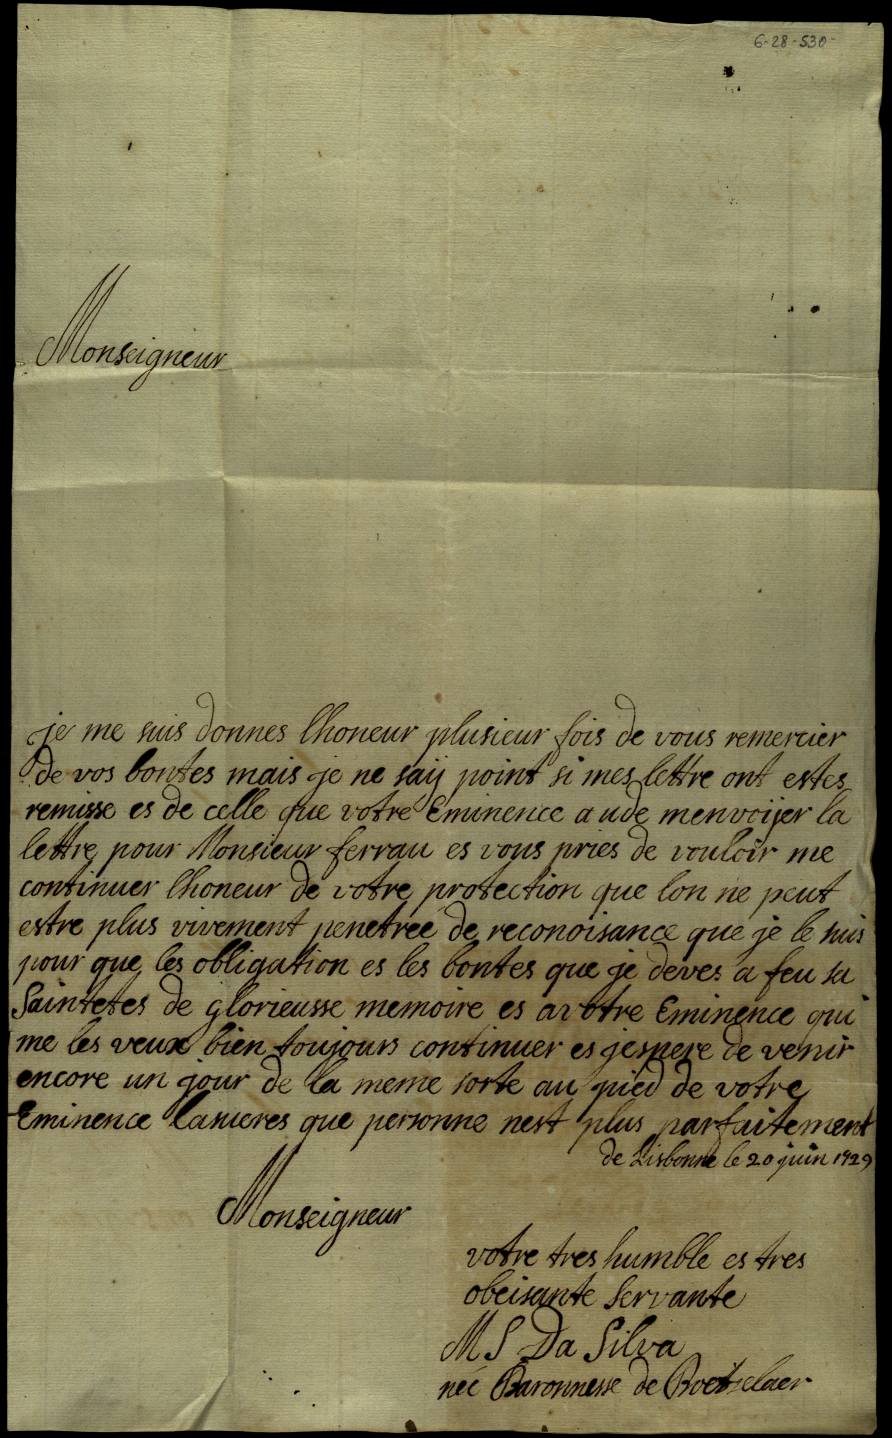 6-28-530-
Monseigneur
je me suis donnes lhoneur plusieur fois de vous remercier
de vos bontes mais je ne saij point si mes lettre ont estes
remisse es de celle que votre Eminence a ude menvoijer la
lettre pour Monsieur ferrau es vous pries de vouloir me
continuer lhoneur de votre protection que lon ne peut
estre plus vivement penetree de reconoisance que je le suis
pour que les obligation es les bontes que je deves a feu sa
Saintetes de glorieusse memoire es a votre Eminence qui
me les veux bien toujours continuer es jespere de venir
encore un jour de la meme sorte au pied de votre
Eminence lasueres que personne nest plus parfaitement
de Lisbonne le 20 juin 1729
Monseigneur
votre tres humble es tres
obeisante servante
M S Da Silva
neé Baronnesse de Boetzelaer